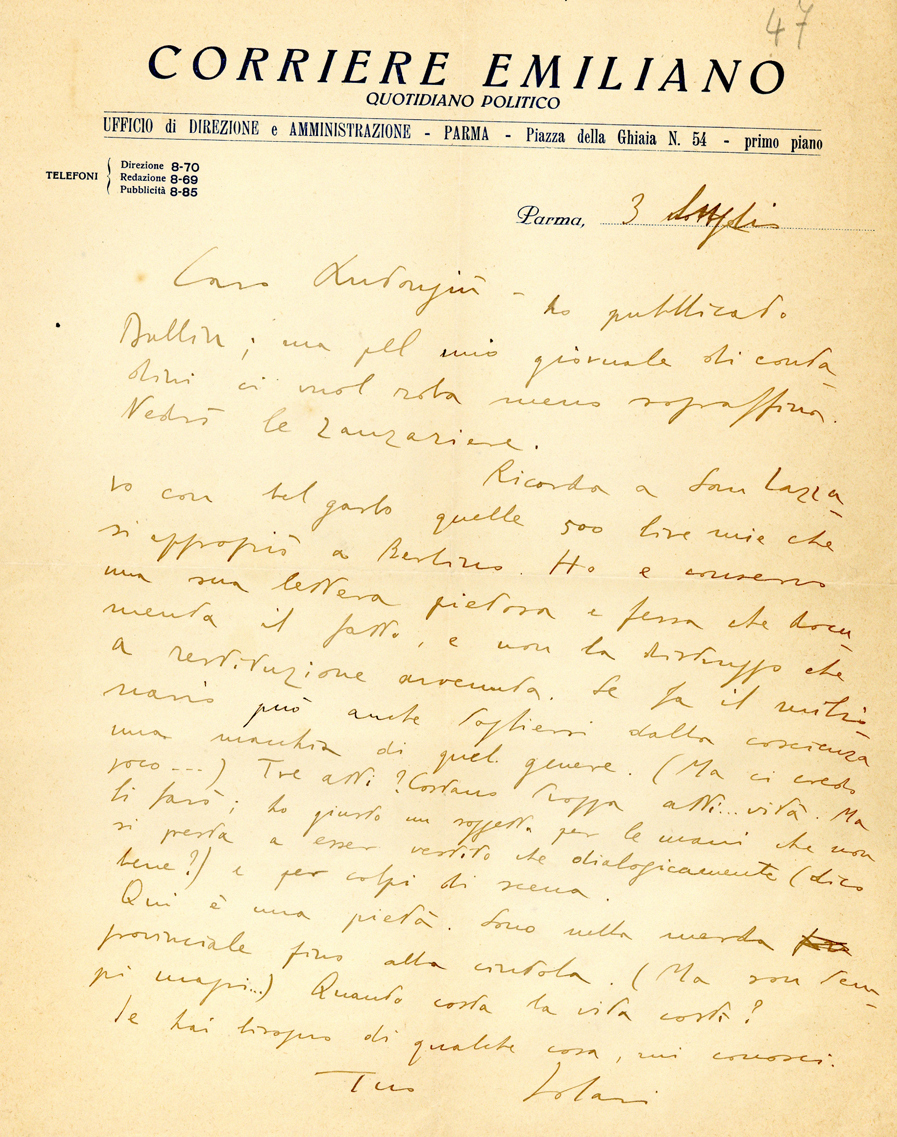 47
CORRIERE EMILIANO
QUOTIDIANO POLITICO
UFFICIO di DIREZIONE e AMMINISTRAZIONE - PARMA - Piazza della Ghiaia N. 54 - primo piano
TELEFONI
Direzione 8-70
Redazione 8-69
Pubblicità 8-85
Parma, 3 Luglio
Caro - ho pubblicato
; ma pel mio giornale di conta
dini ci vuol roba meno sopraffina.
Vedrò le zanzariere.
Ricorda a San Lazza
ro con bel garbo quelle 500 lire mie che
si appropiò a Berlino. Ho e conservo
una sua lettera pietosa e fessa che docu
menta il fatto, e non la distruggo che
a restituzione avvenuta. Se fa il milio
nario può anche togliersi dalla coscienza
una macchia di quel genere. (Ma ci credo
poco---) Tre atti? Costano troppa atti...vità. Ma
li farò; ho giusto un soggetto per le mani che non
si presta a esser vestito che dialogicamente (dico
bene?) e per colpi di scena.
Qui è una pietà. Sono nella merda
provinciale fino alla cintola. (Ma son tem-
pi magri...) Quanto costa la vita costì?
Se hai bisogno di qualche cosa, mi conosci.
Tuo Solari